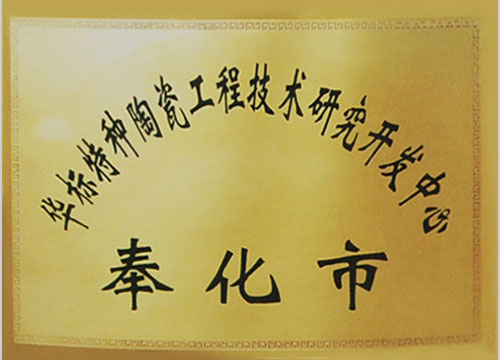 华标特种陶瓷工程技术研究开发中心
奉化市